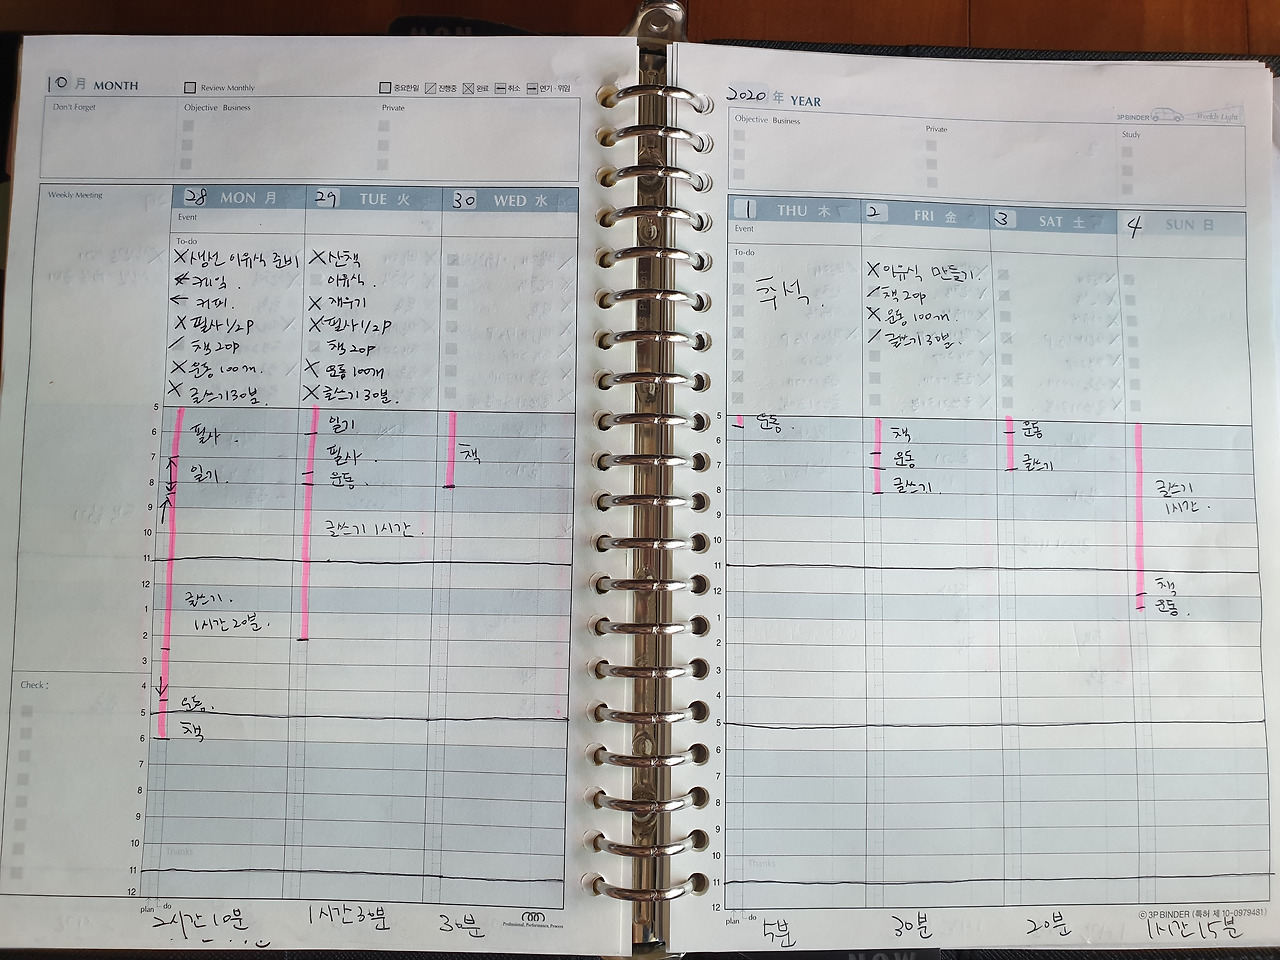 10 月 MONTH
Review Monthly
중요한일 진행중 완료 취소 연기·위임
Don't Forget
Objective Business
Private
Weekly Meeting
28 MON 月
29 TUE 火
30 WED 水
Event
To-do
생선 이유식 준비
케일.
커피.
필사 1/2p
책 20p
운동 100개.
글쓰기 30분.
산책
이유식.
재우기
필사 1/2p
책 20p
운동 100개
글쓰기 30분.
5
6
7
8
9
10
11
12
1
2
3
4
5
6
7
8
9
10
11
12
필사.
일기.
글쓰기.
1시간 20분.
운동.
책
일기
필사.
운동.
글쓰기 1시간.
책
Check :
Thanks
plan do
2시간 10분
1시간 30분
30분
Professional, Performance, Process
2020 年 YEAR
3P BINDER Weekly Light
Objective Business
Private
Study
1 THU 木
2 FRI 金
3 SAT 土
4 SUN 日
Event
To-do
추석.
이유식 만들기.
책 20p
운동 100개.
글쓰기 30분.
5
6
7
8
9
10
11
12
1
2
3
4
5
6
7
8
9
10
11
12
운동.
책
운동
글쓰기.
운동
글쓰기
글쓰기
1시간.
책
운동.
Thanks
plan do
5분
30분
20분
1시간 15분
© 3P BINDER (특허 제 10-0979481)